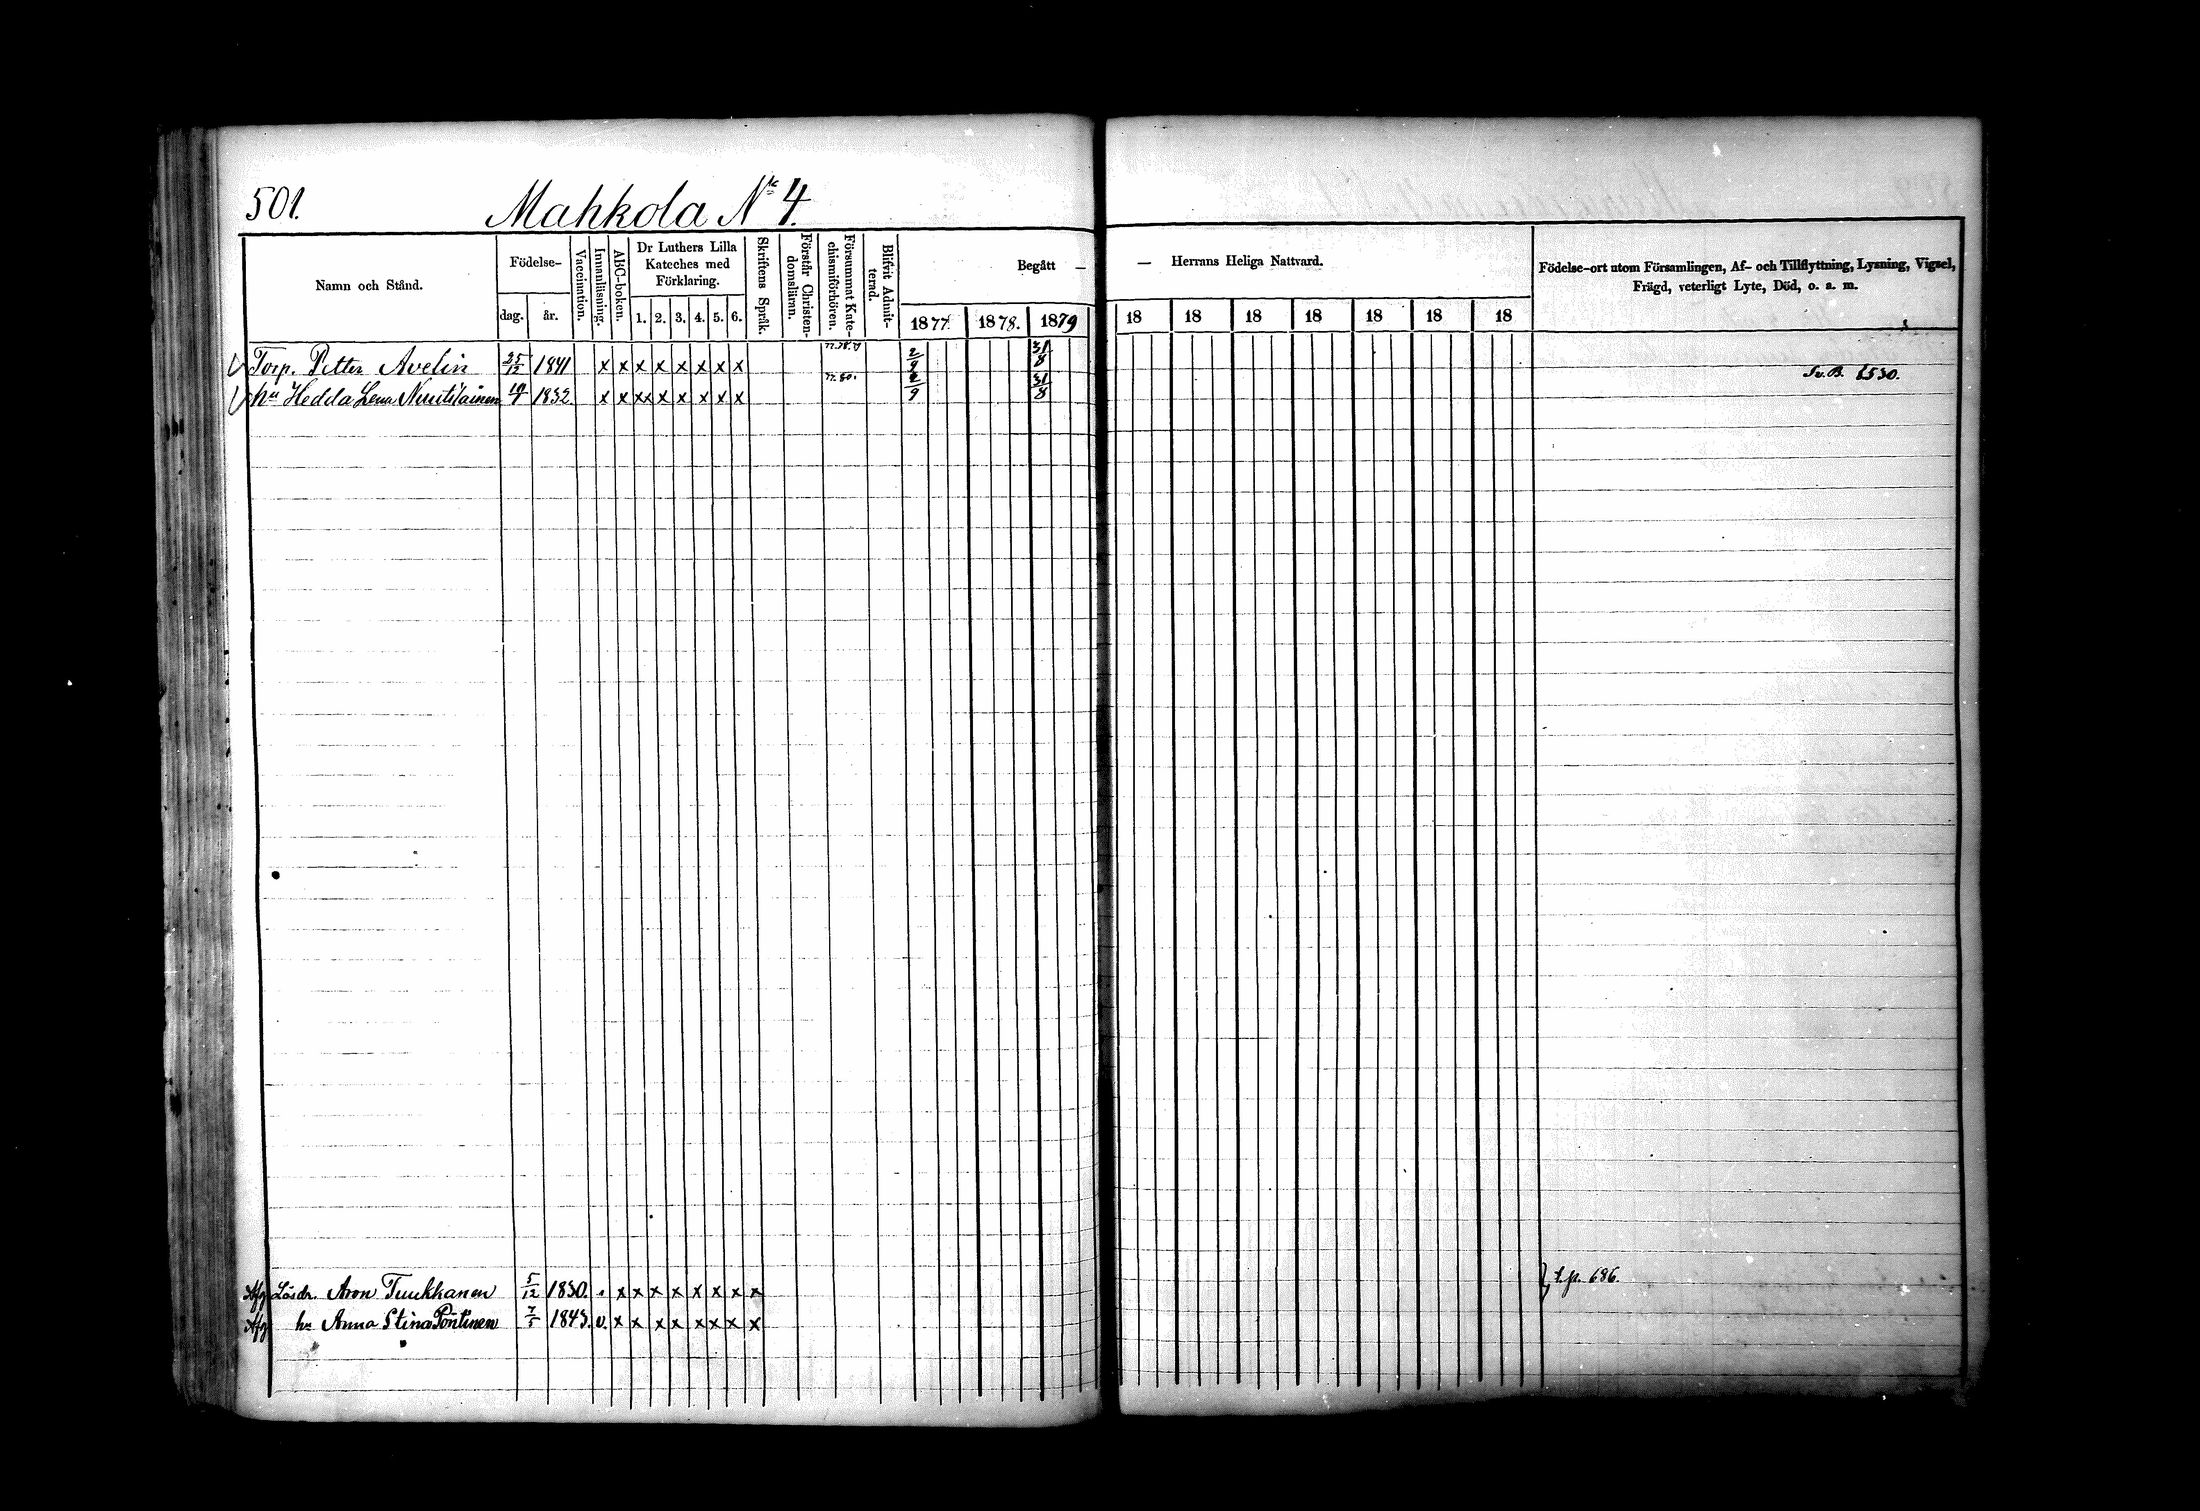 501.
Mahkola No 4.
Namn och Stånd.
Födelse-
dag.
år.
Vaccination.
Innanläsning.
ABC-boken.
Dr Luthers Lilla
Kateches med
Förklaring.
1. 2. 3. 4. 5. 6.
Skriftens Språk.
Förstår Christen-
domslärnn.
Försummat Kate-
chismiförhören.
Blifvit Admit-
terad.
Begått —
— Herrans Heliga Nattvard.
1877. 1878. 1879 18 18 18 18 18 18 18
Födelse-ort utom Församlingen, Af- och Tillflyttning, Lysning, Vigsel,
Frägd, veterligt Lyte, Död, o. a. m.
Torp. Petter Avelin 25/12 1841 x x x x x x x x 2/9 31/8
S. B. 1530.
hu Hedda Lena Nuutilainen 1832 x x xx x x x x x 77. 80. 2/9 31/8
Afg Lösdr. Aron Tuukkanen 5/12 1830. x x x x x x x x } t. p. 686.
Afg hu Anna Stina Pöntinen 7/5 1843. v. x x x x x x x x